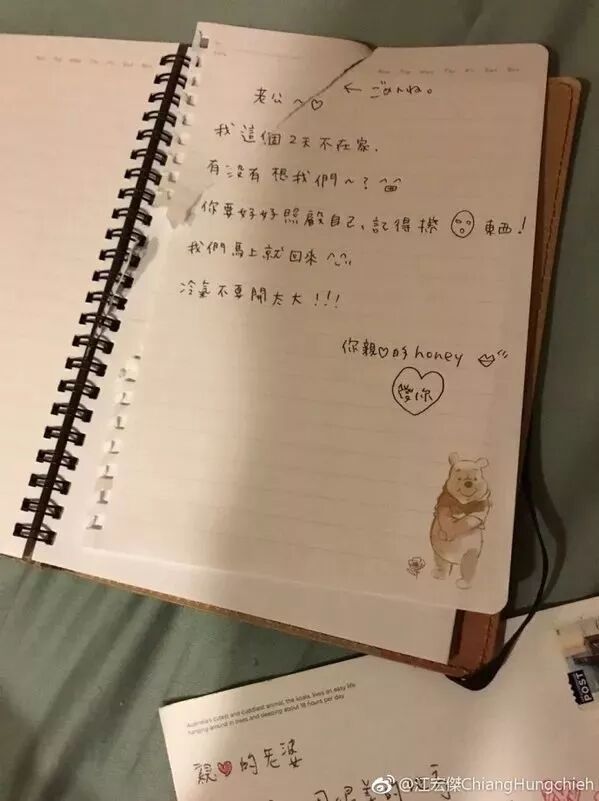 老公～♡ ← ごめんね。
我這個2天不在家.
有沒有想我們～?
你要好好照顧自己,記得 東西!
我們馬上就回來^^
冷氣不要開太大!!!
你親♡的honey
愛你
Australia's cutest and cuddliest animal, the koala, lives an easy life
hanging around in trees and sleeping about 18 hours per day
POST
親♥的老婆
@江宏傑ChiangHungchieh